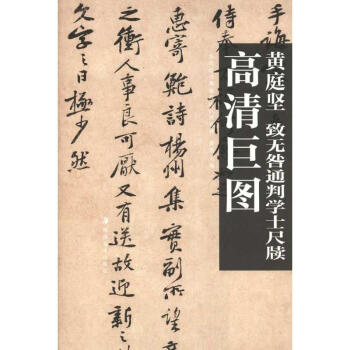 黄庭坚 致无咎通判学士尺牍
高清巨图
手诲
侍奉
惠寄鲍詩楊州集實副所望
之衝人事良可厭又有送故迎新之
文字之日極少然